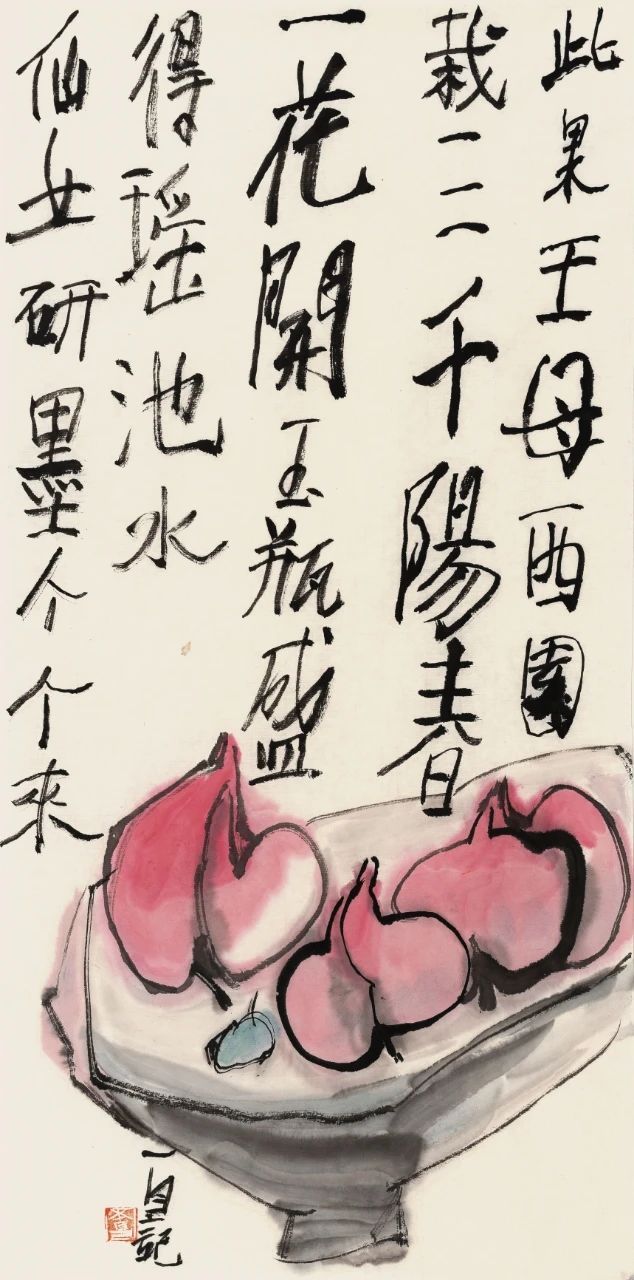 此果王母西園
栽三千陽春
一花開玉瓶盛
得瑶池水
仙女研墨个个來
記